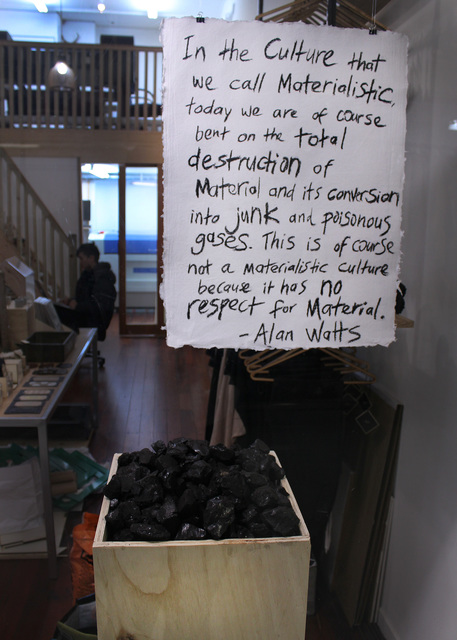 In the Culture that
we call Materialistic,
today we are of course
bent on the total
destruction of
Material and its conversion
into junk and poisonous
gases. This is of course
not a materialistic culture
because it has no
respect for Material.
- Alan Watts